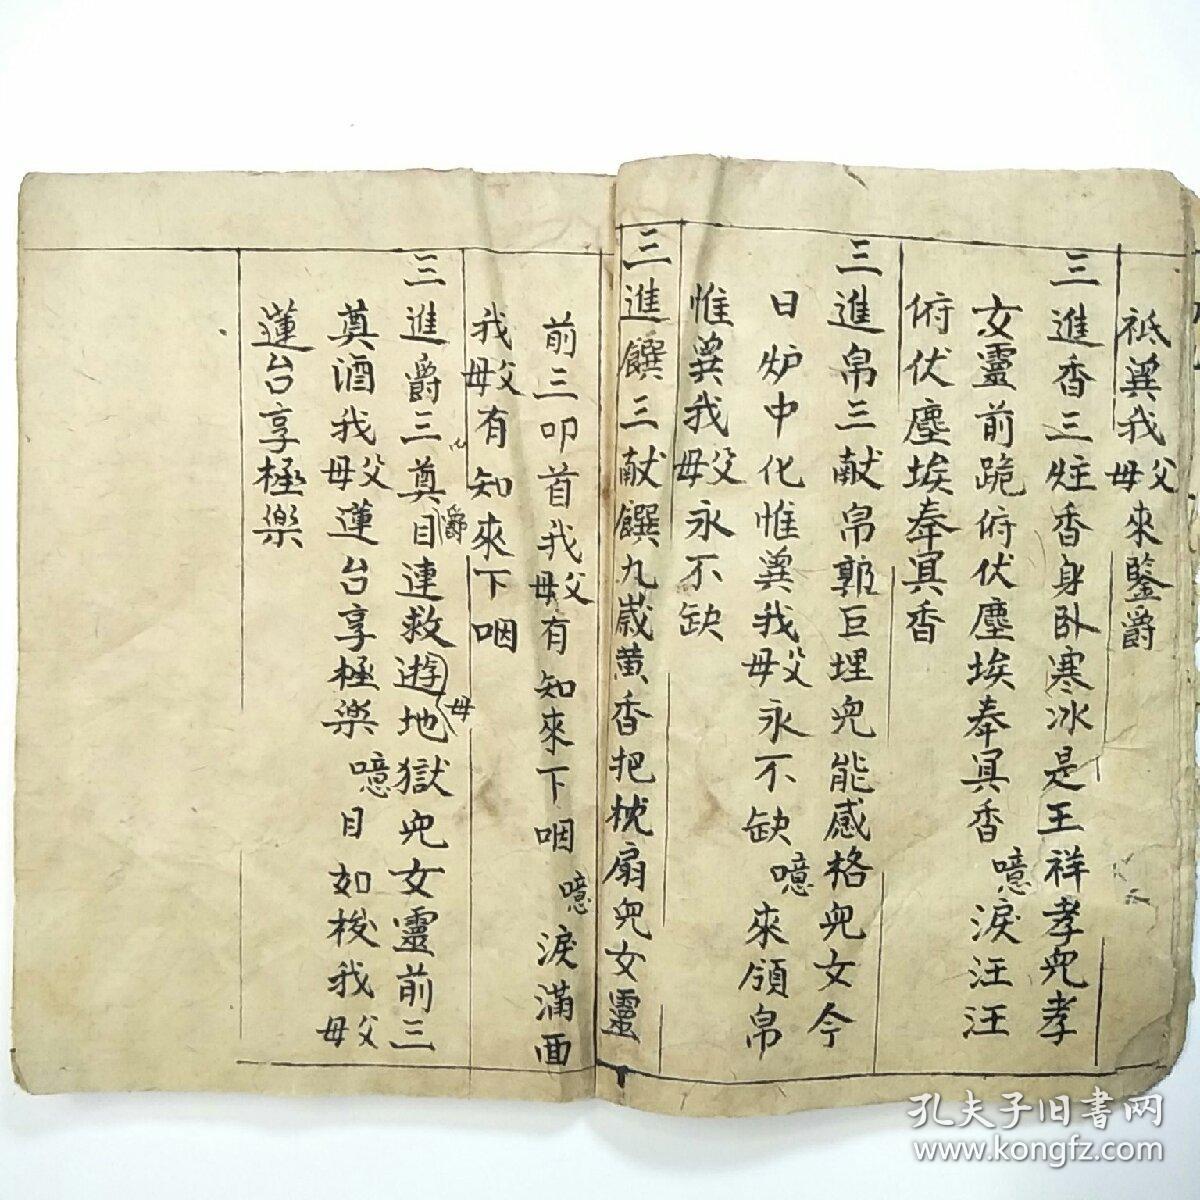 祗冀我父母來鑒爵
三進香三炷香身卧寒冰是王祥孝兒孝
女靈前跪俯伏塵埃奉冥香噫淚汪汪
俯伏塵埃奉冥香
三進帛三献帛郭巨埋兒能感格兒女今
日炉中化惟冀我父母永不缺噫來領帛
惟冀我父母永不缺
三進饌三献饌九歲黄香把枕扇兒女靈
前三叩首我父母有知來下咽噫淚滿面
我父母有知來下咽
三進爵三奠爵目連救母遊地獄兒女靈前三
奠酒我父母蓮台享極樂噫日如梭我父母
蓮台享極樂
孔夫子旧书网
www.kongfz.com